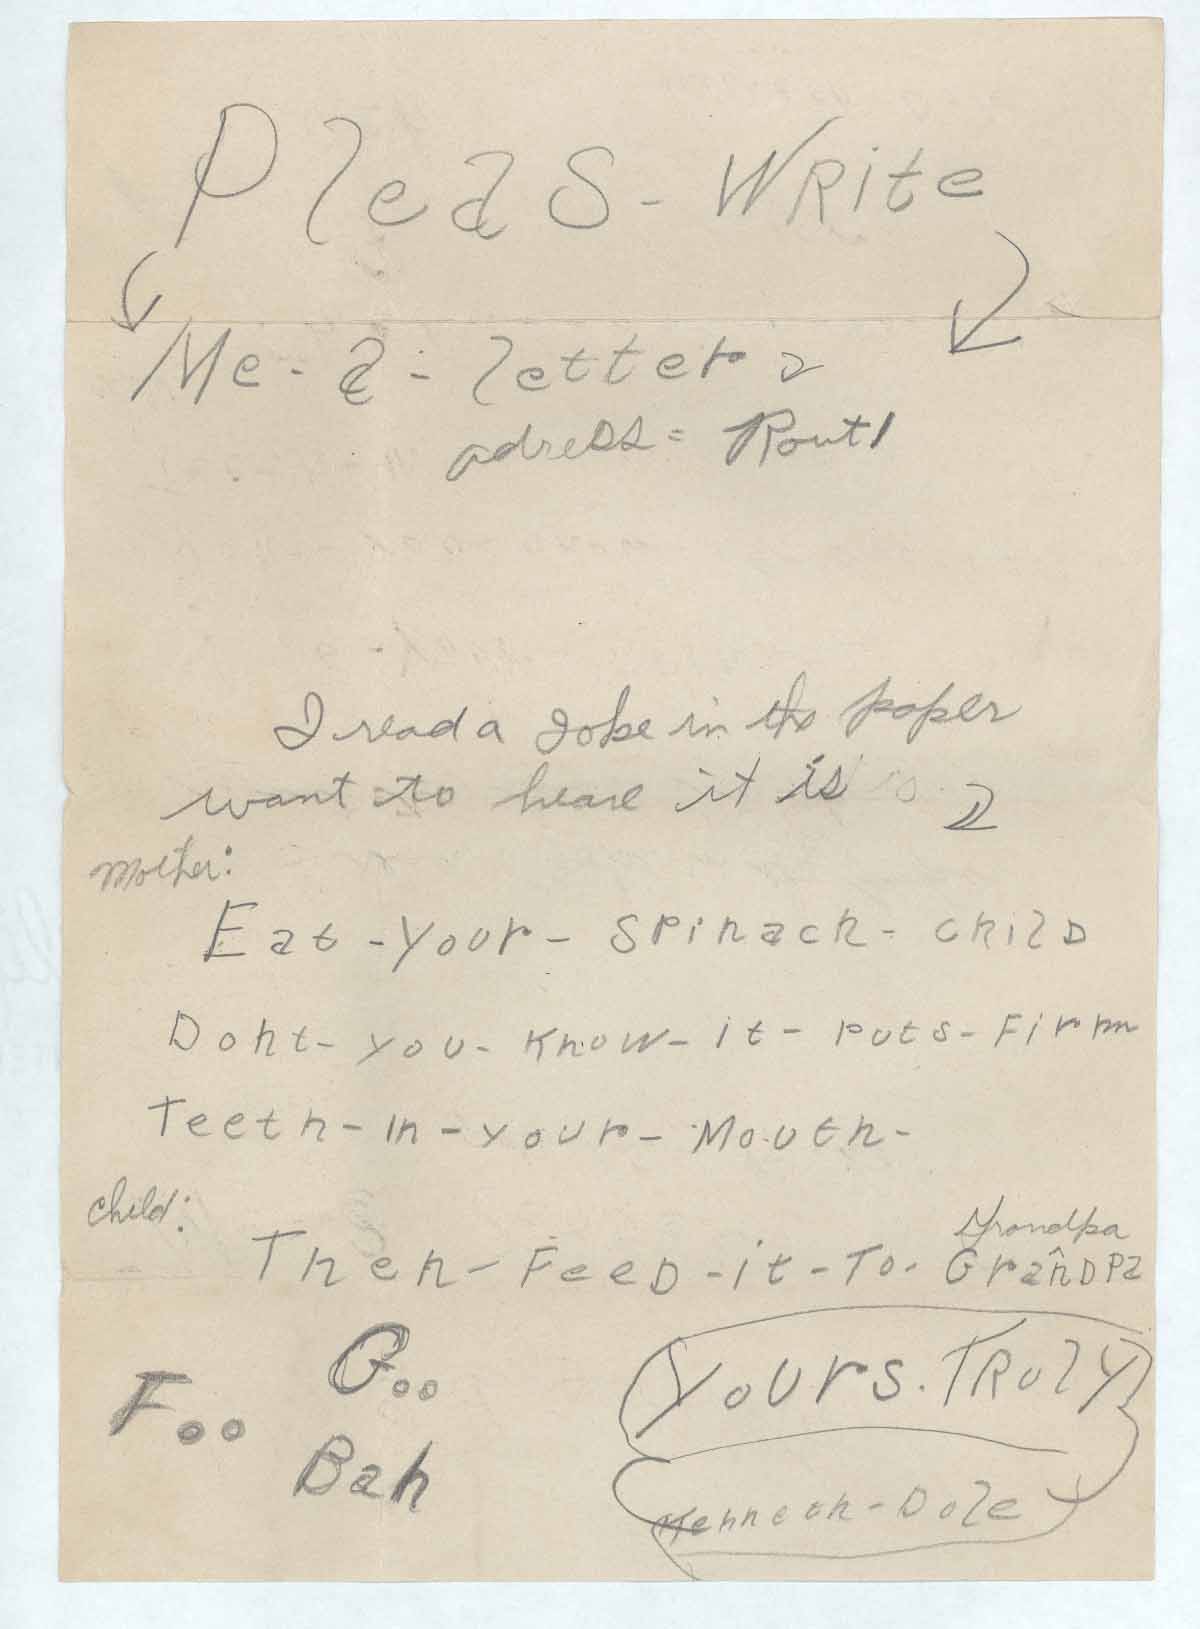 Pleas - Write
Me - a - letter
adress = Rout 1
I read a Joke in the paper
want to heare it is
Mother:
Eat - your - spinach - child
Dont - you - know - it - puts - firm
Teeth - in - your - Mouth -
Child:
Grandpa
Then - Feed - it - To - GranDPa
Foo
Goo
Bah
Yours. Truly
Kenneth - Dole